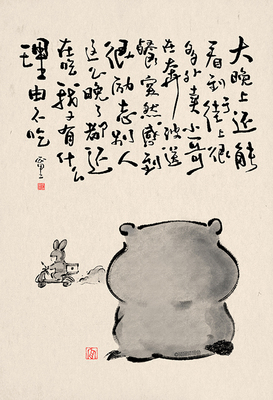 大晚上还能
看到街上很
多外卖小哥
在奔波送
餐突然感到
很励志别人
这么晚了都还
在吃我有什么
理由不吃